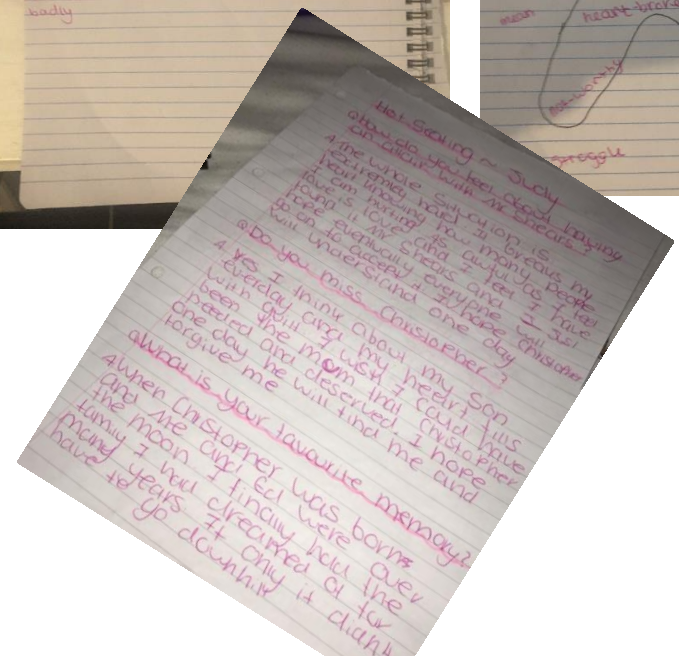 badly
mean
heart-broke
not-worthy
struggle
Hot Seating ~ Judy
Q. How do you feel about having
an affair with Mr Shears?
A. The whole situation is
extremely hard. It breaks my
heart knowing how many people
I am hurting. It's awful as I feel
love is love and I feel I have
found it. Mr Shears and I just
hope eventually everyone will
go on to accept it. I hope Christopher
will understand one day.
Q. Do you miss Christopher?
A. Yes I think about my son
everyday and my heart fills
with guilt. I wish I could have
been the mom that Christopher
needed and deserved. I hope
one day he will find me and
forgive me
Q. What is your favourite memory?
A. When Christopher was born
and me and Ed were over
the moon. I finally had the
family I had dreamed of for
many years. If only it didn't
have to go downhill